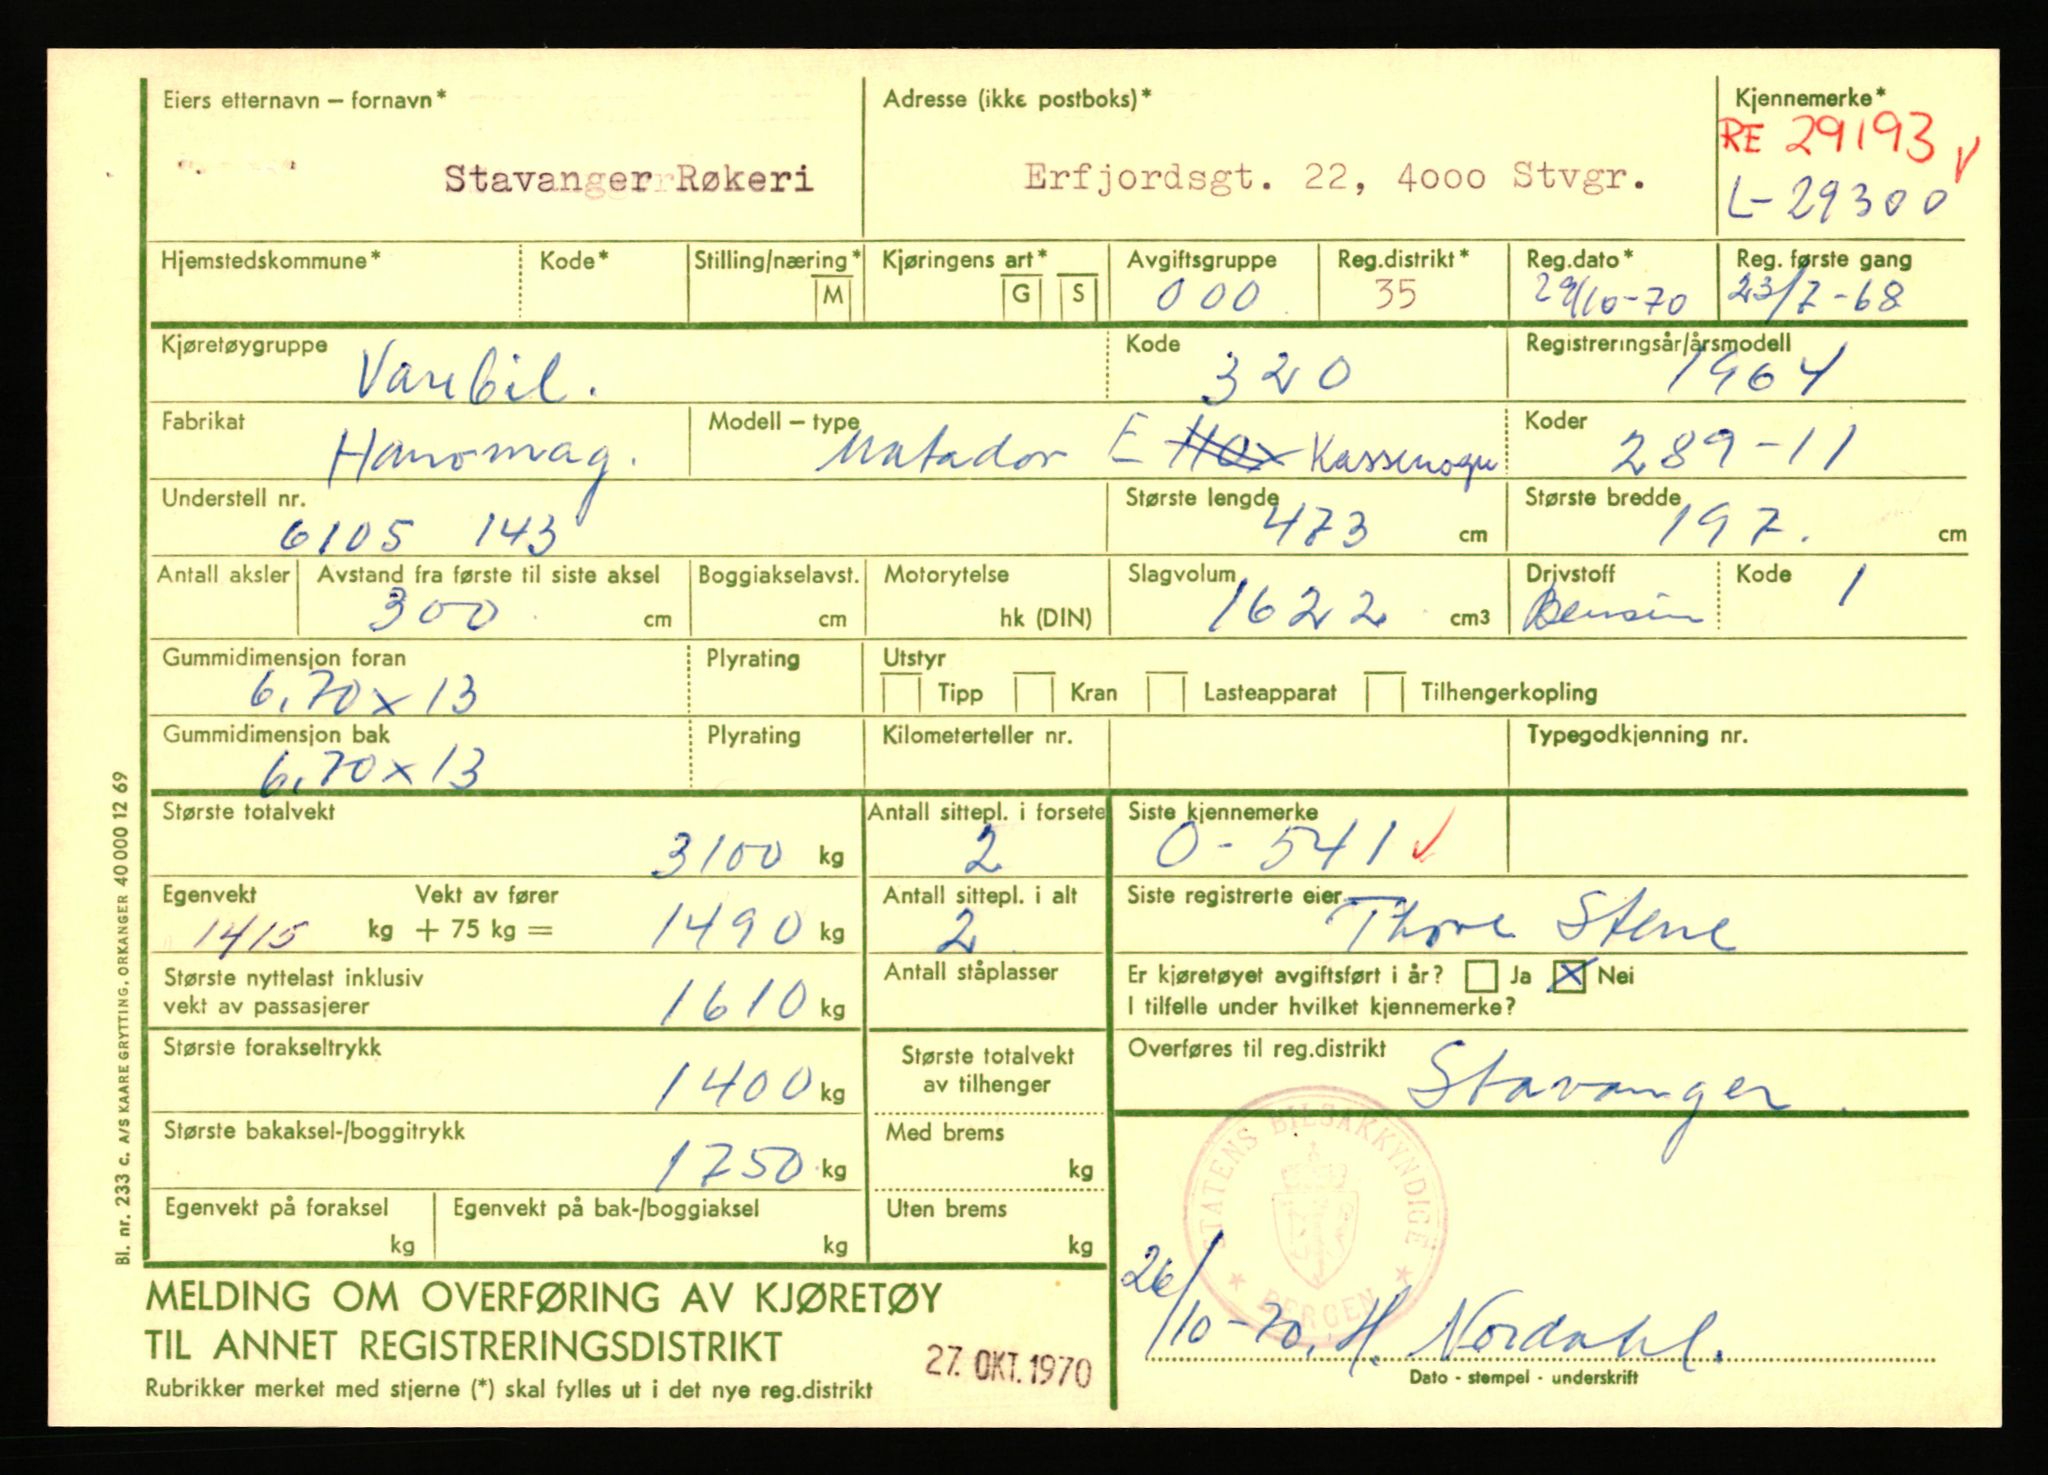 Eiers etternavn – fornavn* Adresse (ikke postboks)* Kjennemerke*
RE 29193
Stavanger Røkeri Erfjordsgt. 22, 4000 Stvgr.
L-29300
Hjemstedskommune* Kode* Stilling/næring* Kjøringens art* Avgiftsgruppe Reg.distrikt* Reg.dato* Reg. første gang
M G S 000 35 29/10-70 23/7-68
Kjøretøygruppe Kode Registreringsår/årsmodell
Varebil. 320 1964
Fabrikat Modell – type Koder
Hanomag. Matador E 289-11
Understell nr. Største lengde Største bredde
6105 143 473 cm 197. cm
Antall aksler Avstand fra første til siste aksel Boggiakselavst. Motorytelse Slagvolum Drivstoff Kode 1
300 cm cm hk (DIN) 1622 cm3 Bensin
Gummidimensjon foran Plyrating Utstyr
6,70x13 Tipp Kran Lasteapparat Tilhengerkopling
Gummidimensjon bak Plyrating Kilometerteller nr. Typegodkjenning nr.
6,70x13
Største totalvekt Antall sittepl. i forsete Siste kjennemerke
3100 kg 2 O-541
Egenvekt Vekt av fører Antall sittepl. i alt Siste registrerte eier
1415 kg + 75 kg = 1490 kg 2 Thore Stene
Største nyttelast inklusiv Antall ståplasser Er kjøretøyet avgiftsført i år? Ja X Nei
vekt av passasjerer 1610 kg I tilfelle under hvilket kjennemerke?
Største forakseltrykk Største totalvekt Overføres til reg.distrikt
1400 kg av tilhenger Stavanger
Største bakaksel-/boggitrykk Med brems
1750 kg kg
STATENS BILSAKKYNDIGE
BERGEN
Egenvekt på foraksel Egenvekt på bak-/boggiaksel Uten brems
kg kg kg
MELDING OM OVERFØRING AV KJØRETØY
TIL ANNET REGISTRERINGSDISTRIKT
27. OKT. 1970
26/10-70, H. Nordahl.
Rubrikker merket med stjerne (*) skal fylles ut i det nye reg.distrikt
Dato - stempel - underskrift
Bl. nr. 233 c. A/S KAARE GRYTTING, ORKANGER 40 000 12 69